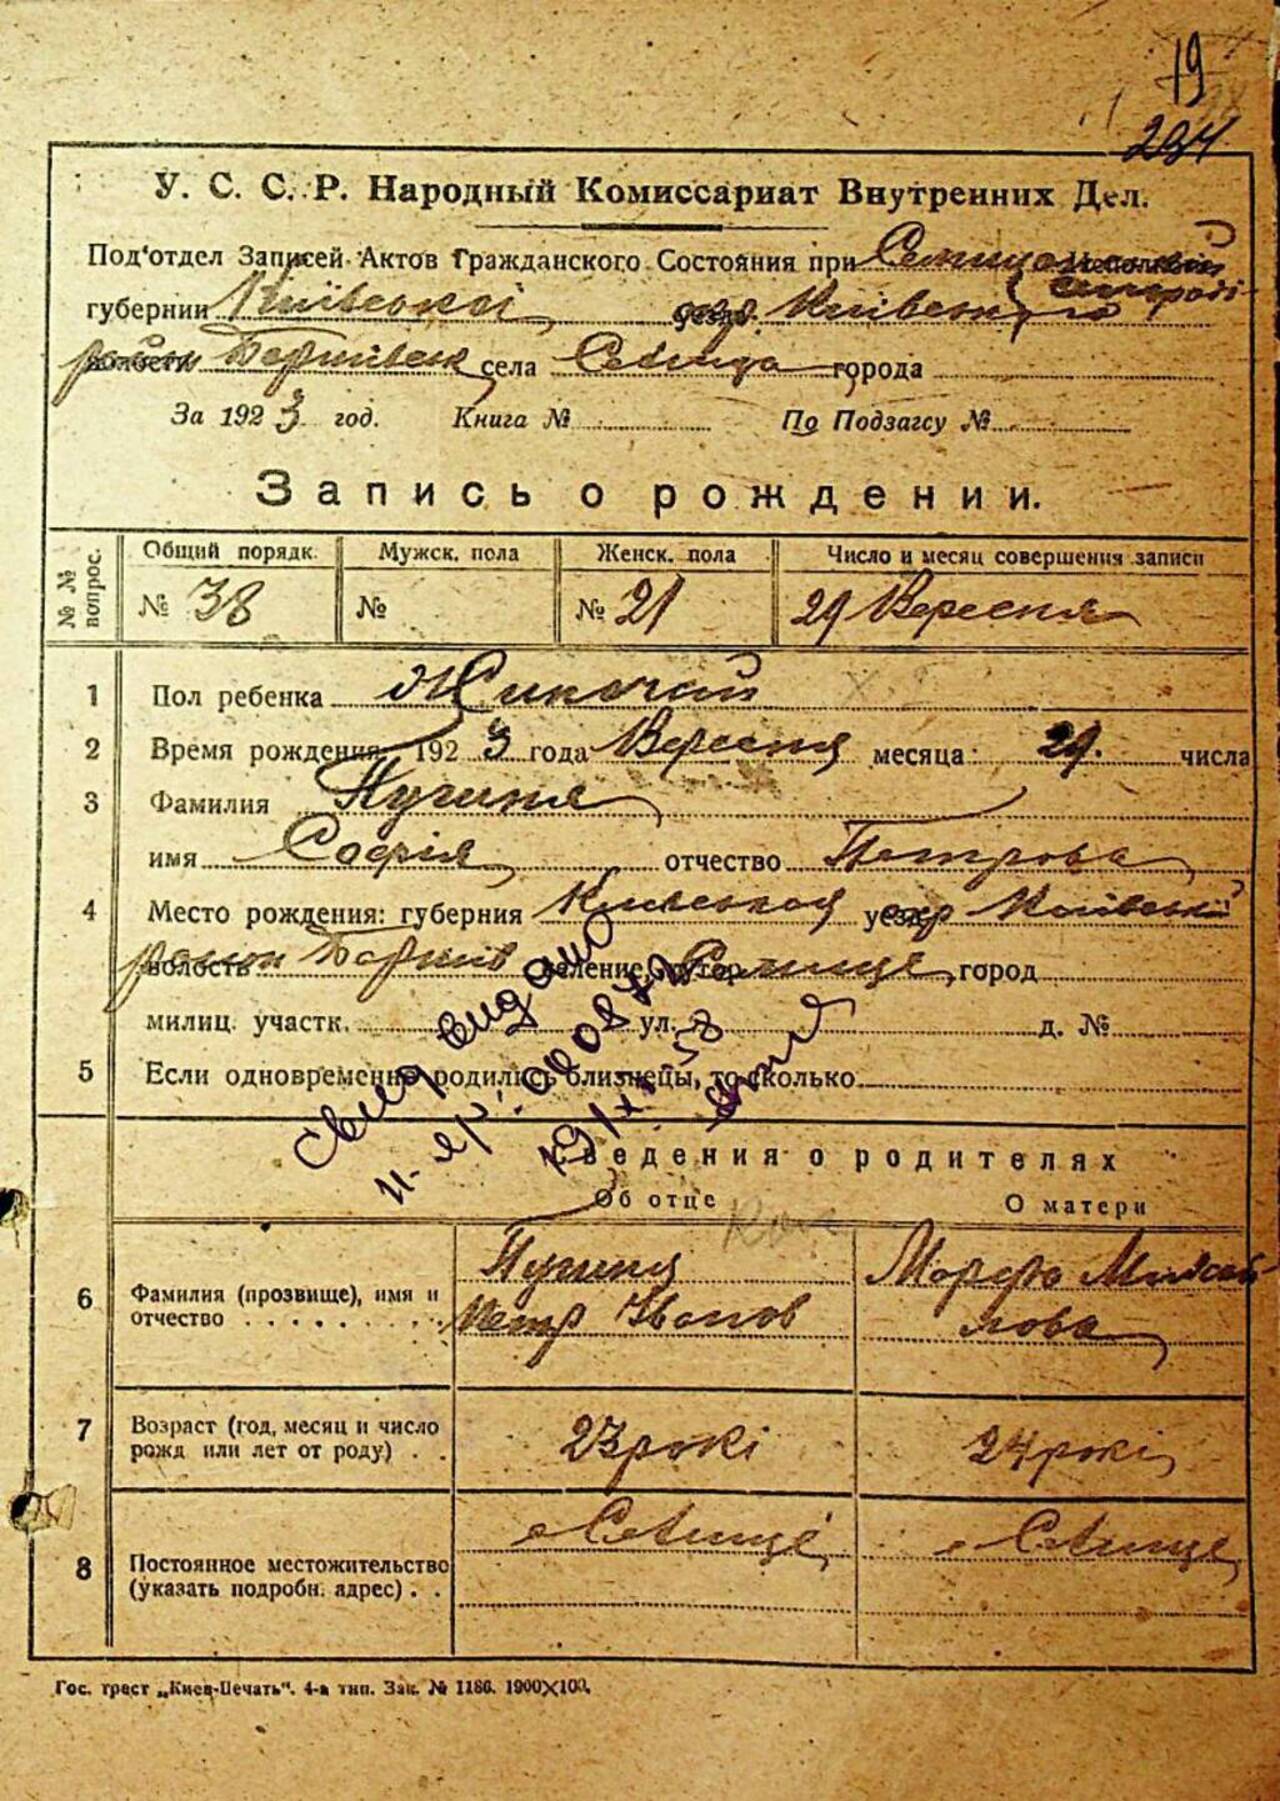 19
234
У. С. С. Р. Народный Комиссариат Внутренних Дел.
Под‘отдел Записей Актов Гражданского Состояния при
губернии Київської уезда окр. Київського
район села Селища города
За 1923 год. Книга № По Подзагсу №
Запись о рождении.
№ № вопрос. Общий порядк. Мужск. пола Женск. пола Число и месяц совершения записи
№ 38 № № 21 29 Вересня
1 Пол ребенка Жиночий
2 Время рождения 1923 года Вересня месяца 29. числа
3 Фамилия
имя Софія отчество Петрова
4 Место рождения: губерния Київської уезд окр Київській
волость район селение, хутор Селище город
милиц. участк. ул. д. №
5 Если одновременно родились близнецы, то сколько
свид видано
Сведения о родителях
Об отце О матери
6 Фамилия (прозвище), имя и отчество
Петр Іванов
Марфа
7 Возраст (год, месяц и число рожд или лет от роду) . .
23 рокі 24 рокі
8 Постоянное местожительство (указать подробн. адрес) . .
с Селище с Селище
Гос. трест „Киев-Печать“. 4-я тип. Зак. № 1186. 1900×100.